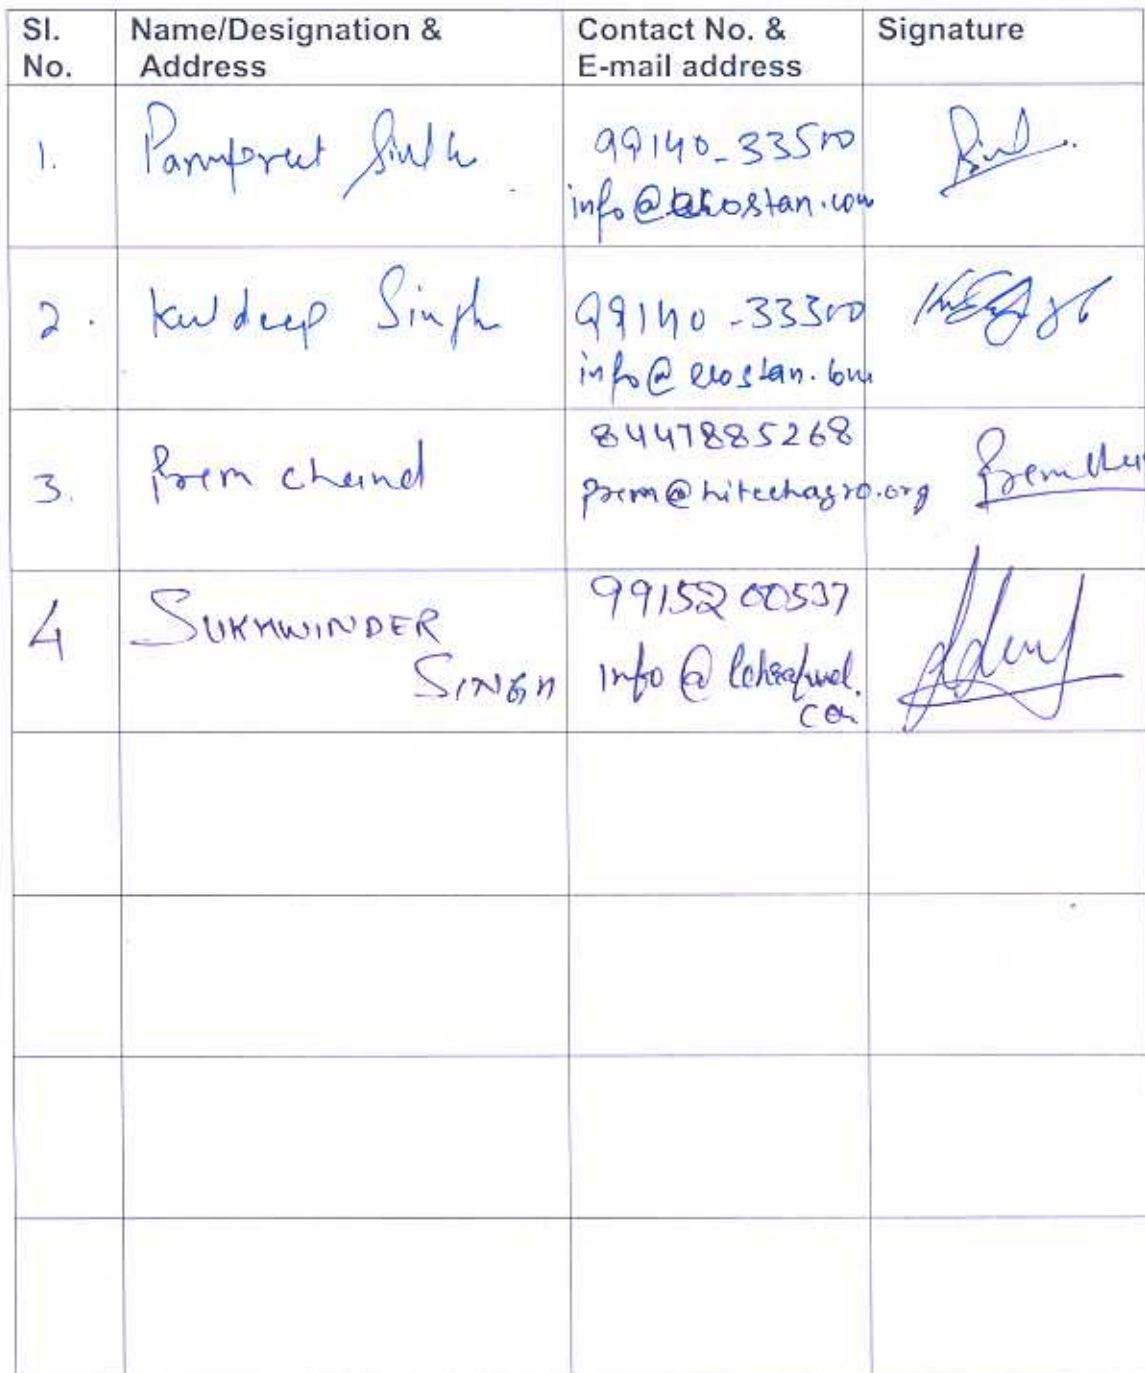 Sl. No. Name/Designation & Address Contact No. & E-mail address Signature
1. Parmpreet Singh 99140-33500
info@ecostan.com
2. Kuldeep Singh 99140-33300
info@ecostan.com
3. Prem chand 8447885268
prem@hitechagro.org
4 SUKHWINDER 99152 00537
SINGH info@lehrafuel.
com